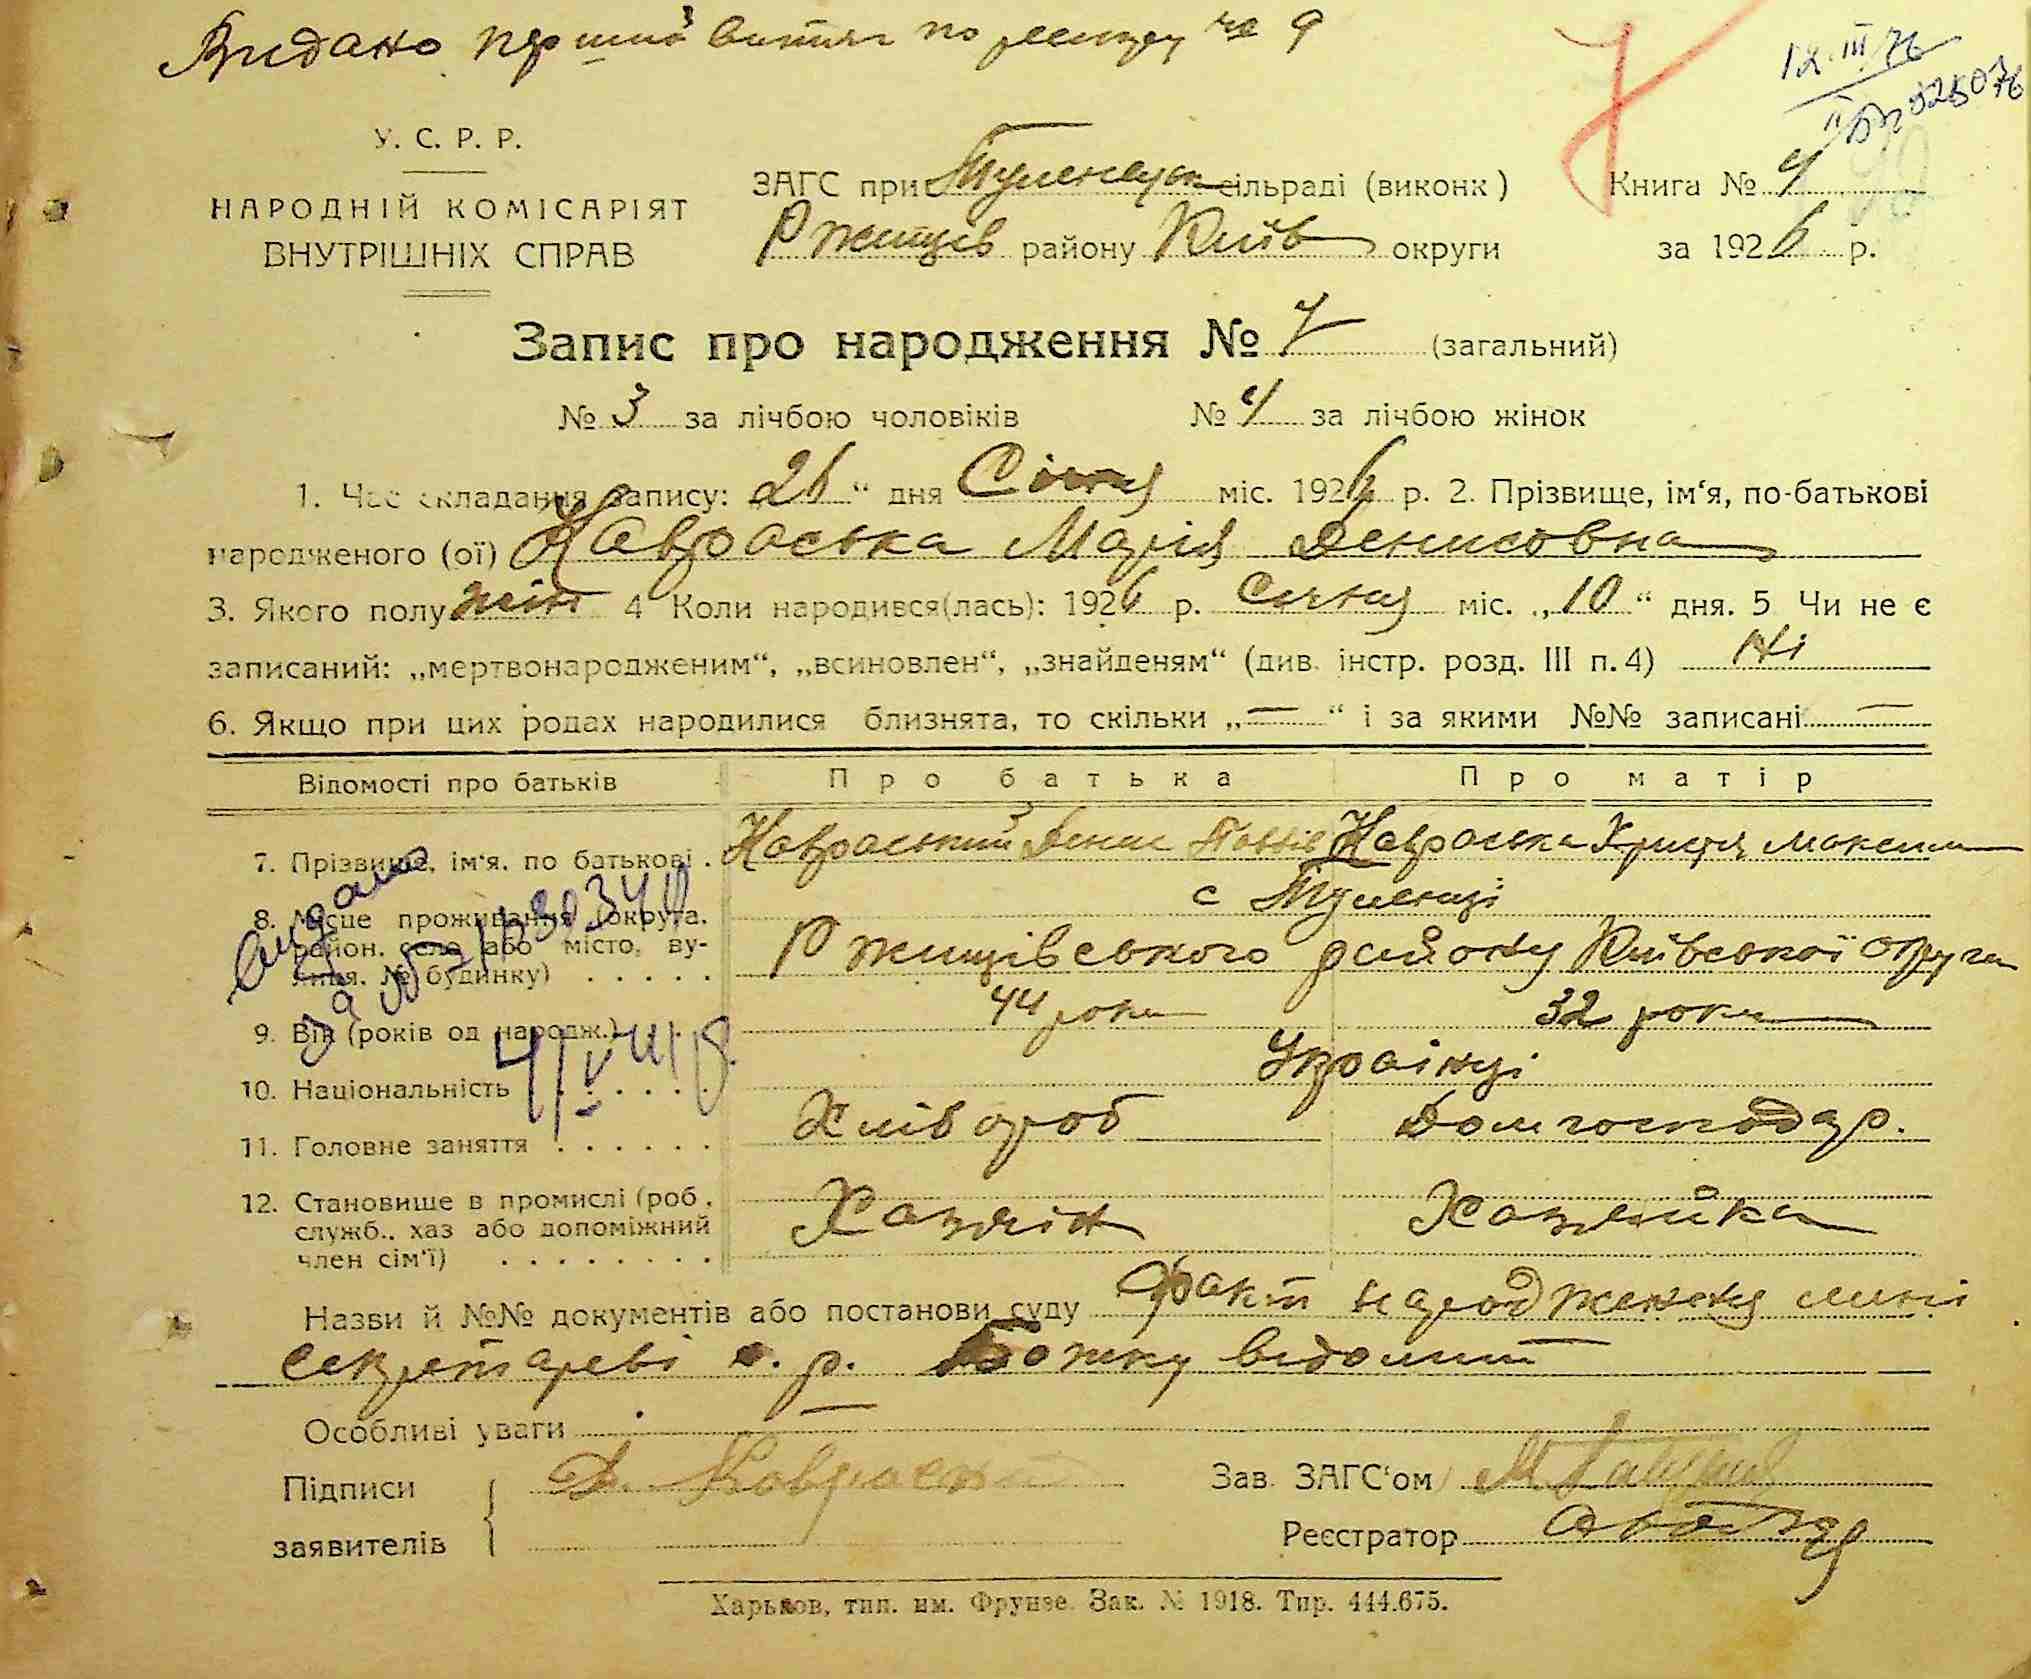 Видано перший витяг по реєстру № 9
12.III.76
У. С. Р. Р.
НАРОДНІЙ КОМІСАРІЯТ
ВНУТРІШНІХ СПРАВ
ЗАГС при Тулинецьк сільраді (виконк)
Ржищів району Київ округи
Книга № 4
за 1926 р.
Запис про народження № 7 (загальний)
№ 3 за лічбою чоловіків № 4 за лічбою жінок
1. Час складання запису: „26“ дня Січня міс. 1926 р. 2. Прізвище, ім‘я, по-батькові
народженого (ої) Навраська Марія Денисовна
3. Якого полу жін 4 Коли народився(лась): 1926 р. Січня міс. „10“ дня. 5 Чи не є
записаний: „мертвонародженим“, „всиновлен“, „знайденям“ (див. інстр. розд. III п. 4) Ні
6. Якщо при цих родах народилися близнята, то скільки „—“ і за якими №№ записані —
Відомості про батьків Про батька Про матір
7. Прізвище, ім‘я, по батькові. Навраський Денис Павлів Навраська Христя Максим
8. Місце проживання (округа, район, село або місто, вулиця, № будинку) . . . . .
с Тулинці
Ржищівського району Київської округи
9. Вік (років од народж.) 44 роки 32 роки
10. Національність . . . . . . Українці
11. Головне заняття . . . . . . Хлівороб Домгосподар.
12. Становище в промислі (роб., служб., хаз або допоміжний член сім‘ї) . . . . . . . . Хазяїн Хазяйка
видано
Назви й №№ документів або постанови суду Факт народження мині
секретареві с. р. Божку відомий
Особливі уваги —
Підписи заявителів Д. Навраськ
Зав. ЗАГС‘ом
Реєстратор
Харьков, тип. им. Фрунзе. Зак. № 1918. Тир. 444.675.